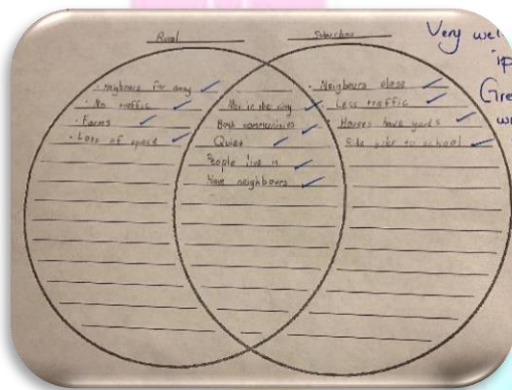 Rural
Suburban
Very wel
Gre
• neighbours far away
• No traffic
• Farms
• Lots of space
Not in the city
Both communities
Quiet
People live in
Have neighbours
• Neighbours close
• Less traffic
• Houses have yards
bike to school